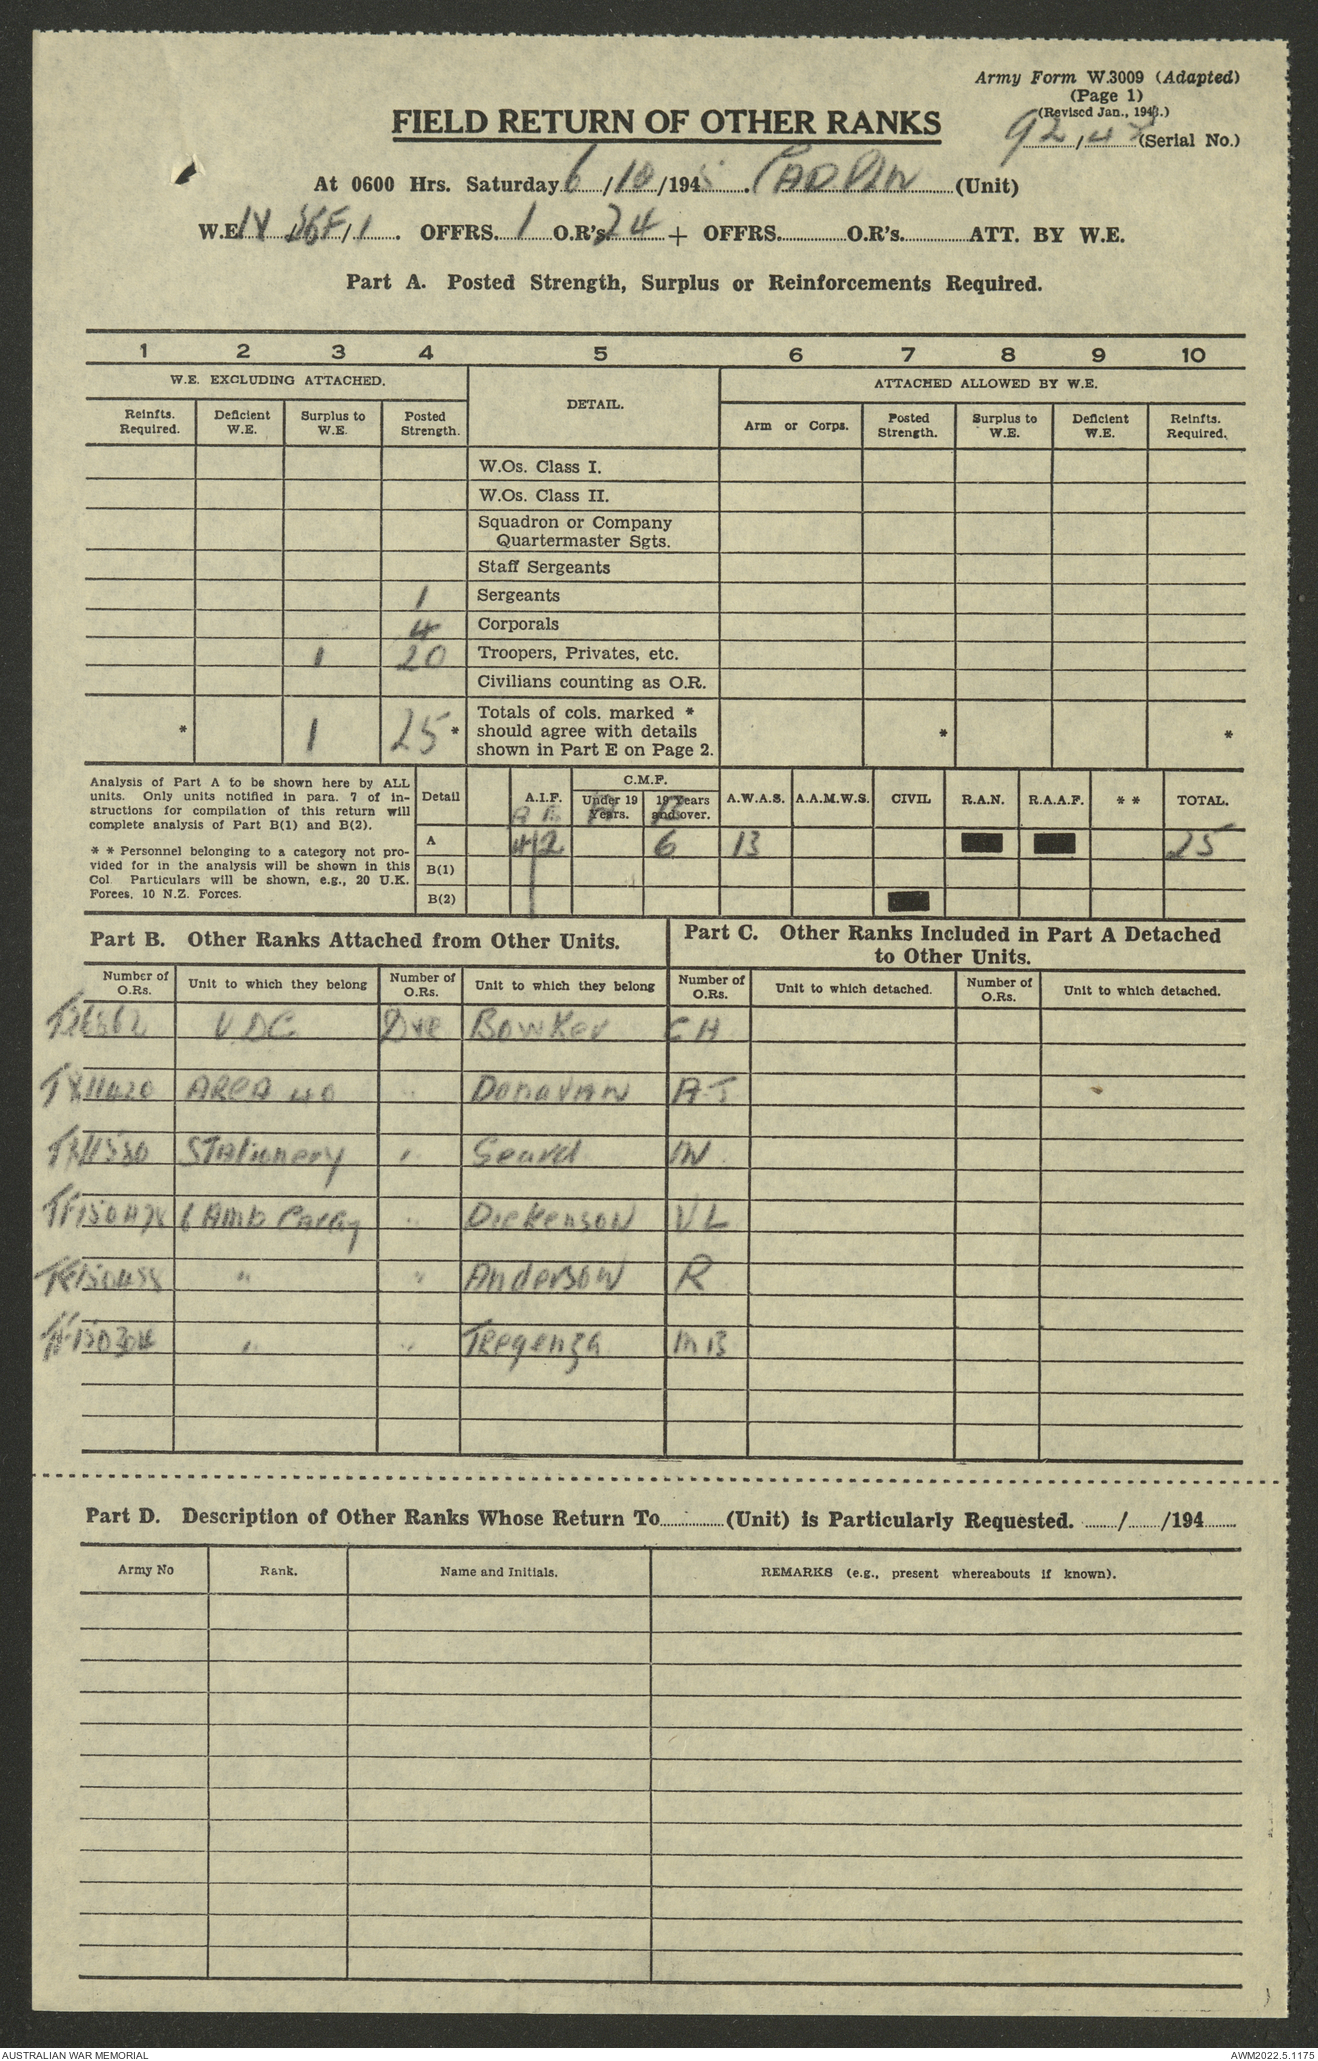 Army Form W.3009 (Adapted)
(Page 1)
(Revised Jan., 1943.)
FIELD RETURN OF OTHER RANKS
92/47 (Serial No.)
At 0600 Hrs. Saturday 6/10/1945. (Unit)
W.E. /1. OFFRS. 1 O.R's. 24 + OFFRS. O.R's. ATT. BY W.E.
Part A. Posted Strength, Surplus or Reinforcements Required.
1 2 3 4 5 6 7 8 9 10
W.E. EXCLUDING ATTACHED. DETAIL. ATTACHED ALLOWED BY W.E.
Reinfts. Required. Deficient W.E. Surplus to W.E. Posted Strength. Arm or Corps. Posted Strength. Surplus to W.E. Deficient W.E. Reinfts. Required.
W.Os. Class I.
W.Os. Class II.
Squadron or Company
Quartermaster Sgts.
Staff Sergeants
1 Sergeants
4 Corporals
1 20 Troopers, Privates, etc.
Civilians counting as O.R.
* 1 25 * Totals of cols. marked * should agree with details shown in Part E on Page 2. * *
Analysis of Part A to be shown here by ALL
units. Only units notified in para. 7 of in-
structions for compilation of this return will
complete analysis of Part B(1) and B(2).
* * Personnel belonging to a category not pro-
vided for in the analysis will be shown in this
Col Particulars will be shown, e.g., 20 U.K.
Forces, 10 N.Z. Forces.
Detail A.I.F. C.M.F. Under 19 Years. 19 Years and over. A.W.A.S. A.A.M.W.S. CIVIL R.A.N. R.A.A.F. * * TOTAL.
A B A B
A 4 2 6 13 25
B(1)
B(2)
Part B. Other Ranks Attached from Other Units.
Part C. Other Ranks Included in Part A Detached
to Other Units.
Number of O.Rs. Unit to which they belong Number of O.Rs. Unit to which they belong Number of O.Rs. Unit to which detached. Number of O.Rs. Unit to which detached.
VDC Dve Bowker CH
TX11420 AREA 40 " Donavan A J
Stationery " Seard W
6 Amb Car Coy " Dickenson V L
" " Anderson R
" " Tregenza M B
Part D. Description of Other Ranks Whose Return To (Unit) is Particularly Requested. / /194
Army No Rank. Name and Initials. REMARKS (e.g., present whereabouts if known).
AUSTRALIAN WAR MEMORIAL AWM2022.5.1175